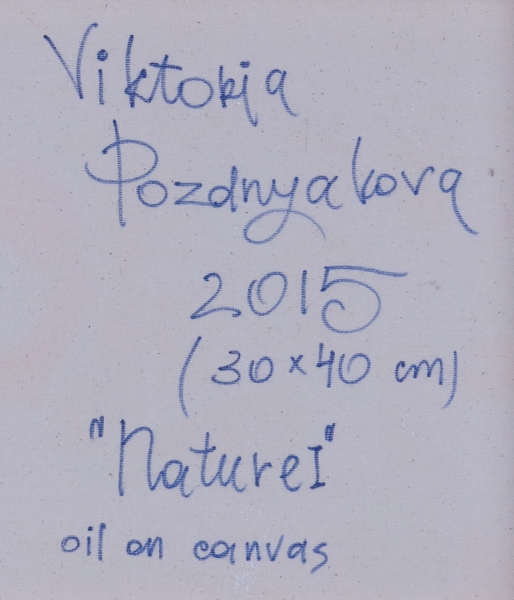 Viktoria
Pozdnyakova
2015
(30 × 40 cm)
"Nature I"
oil on canvas